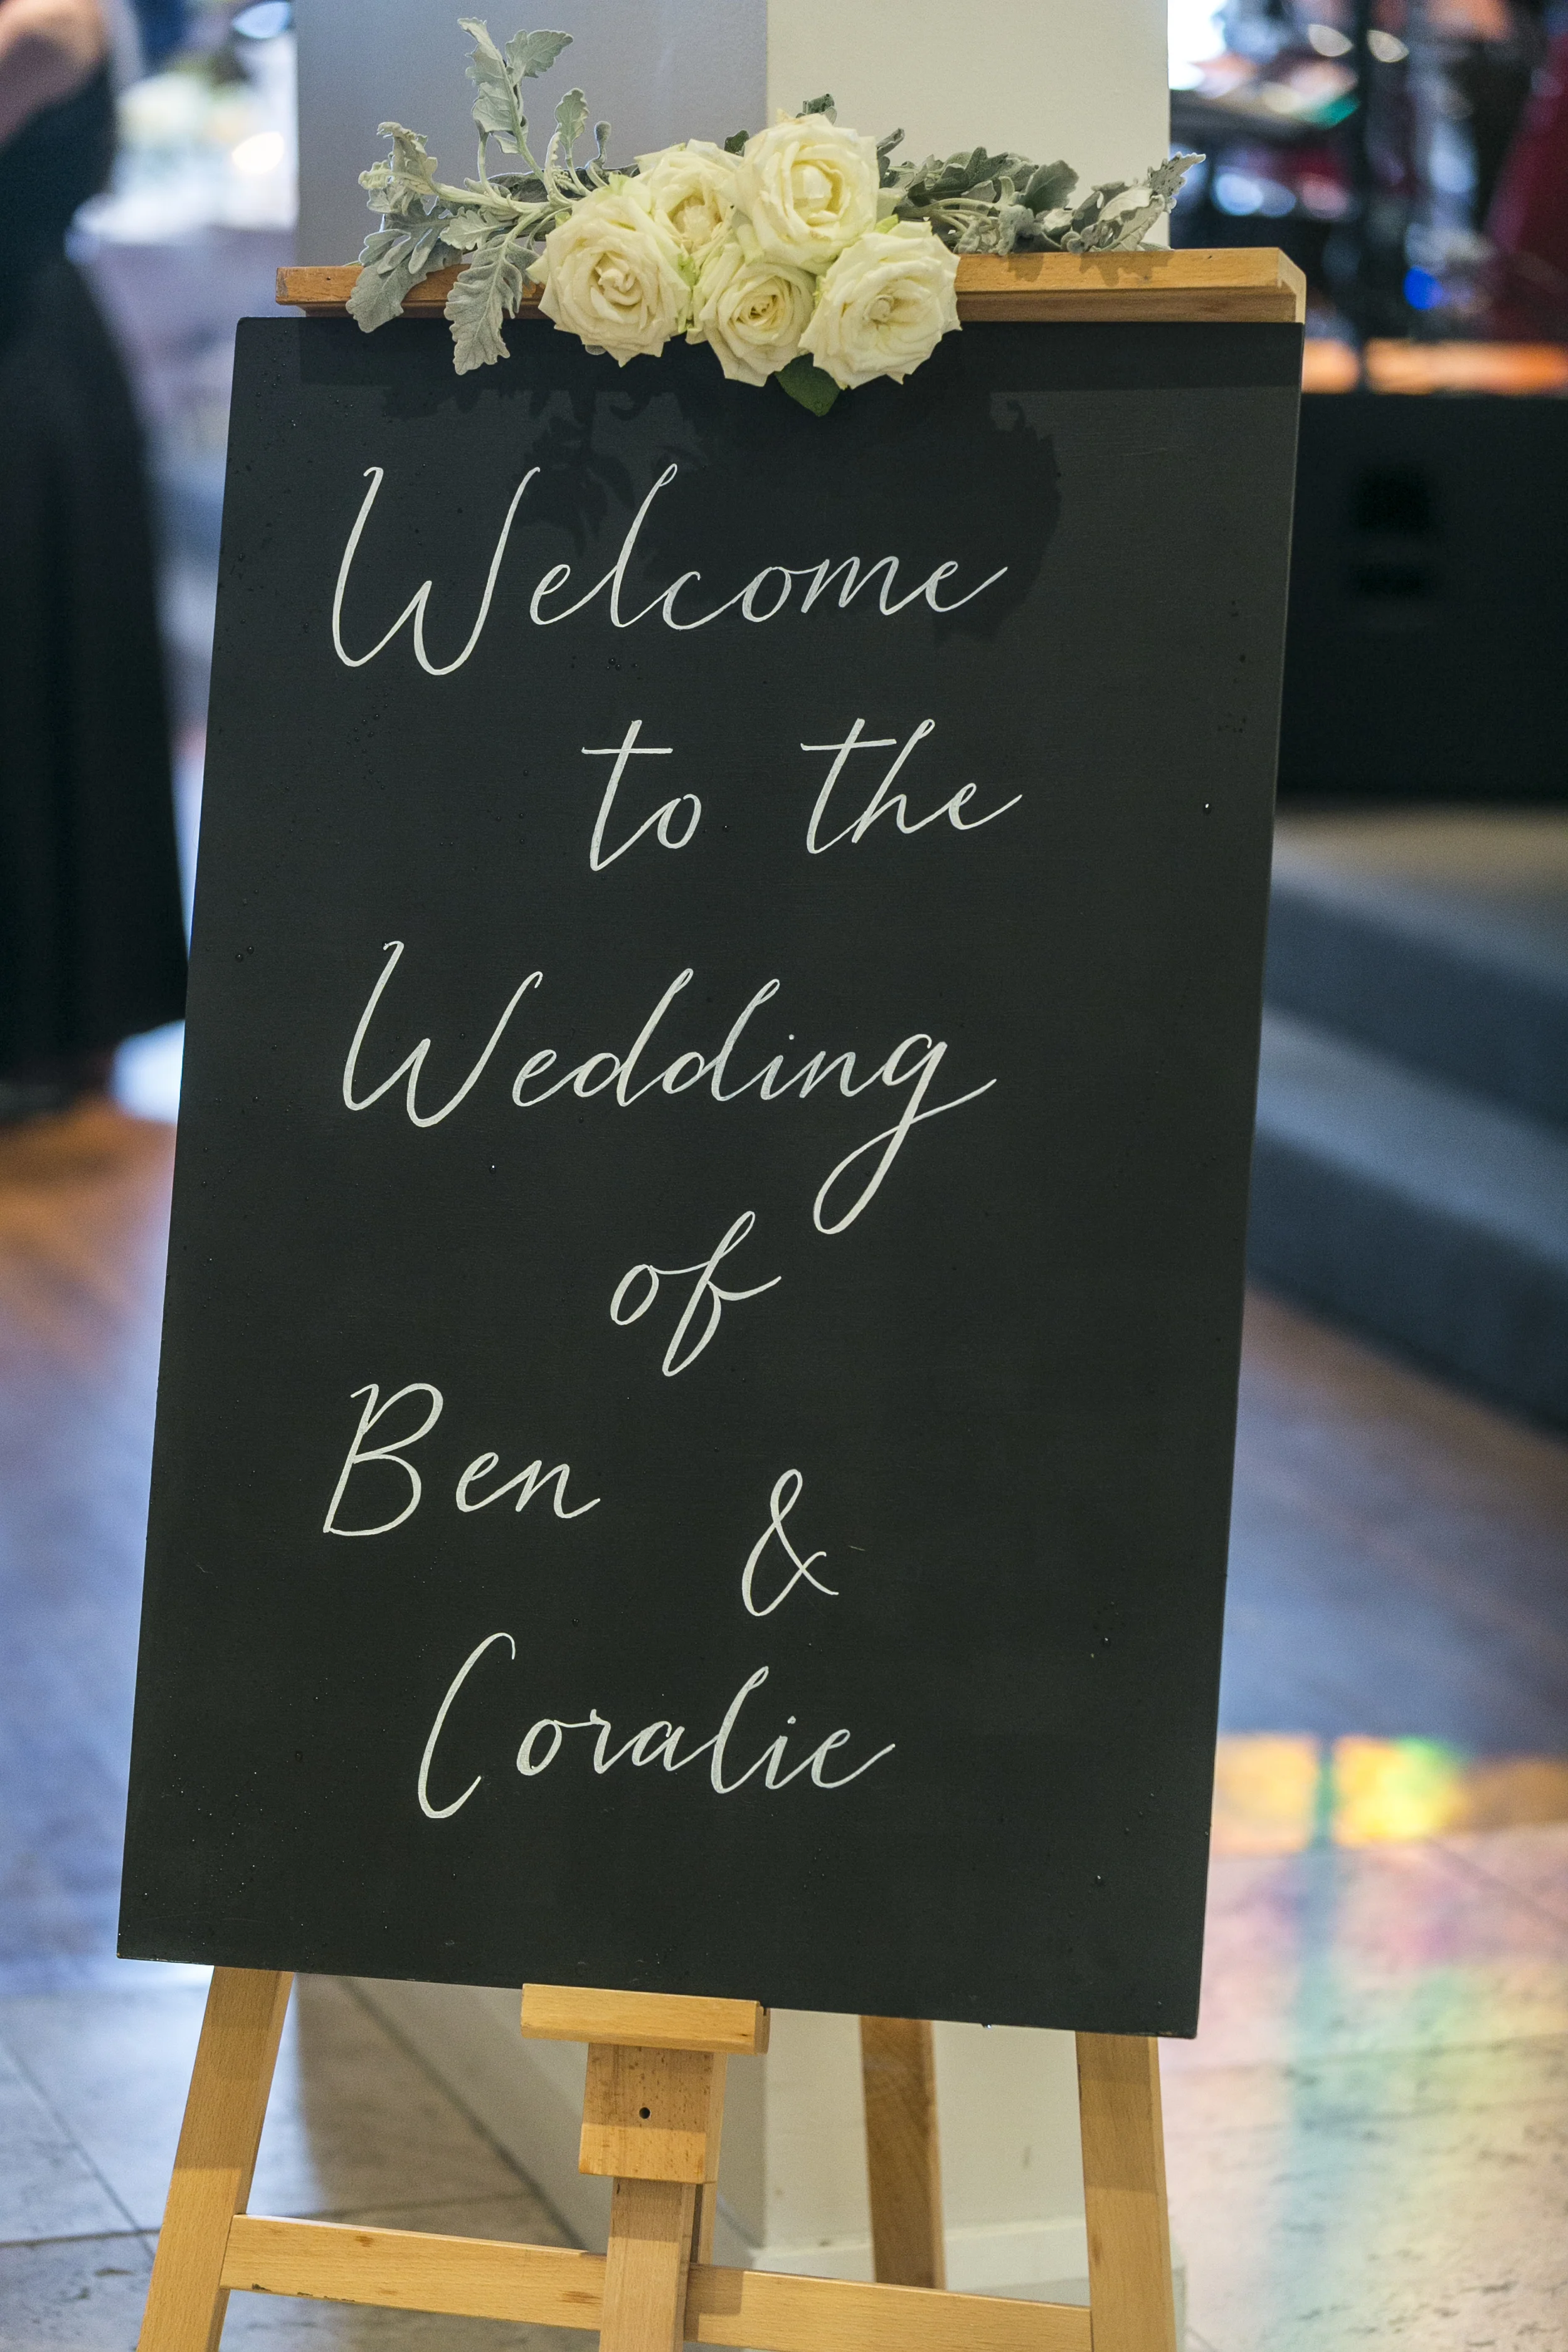 Welcome
to the
Wedding
of
Ben &
Coralie